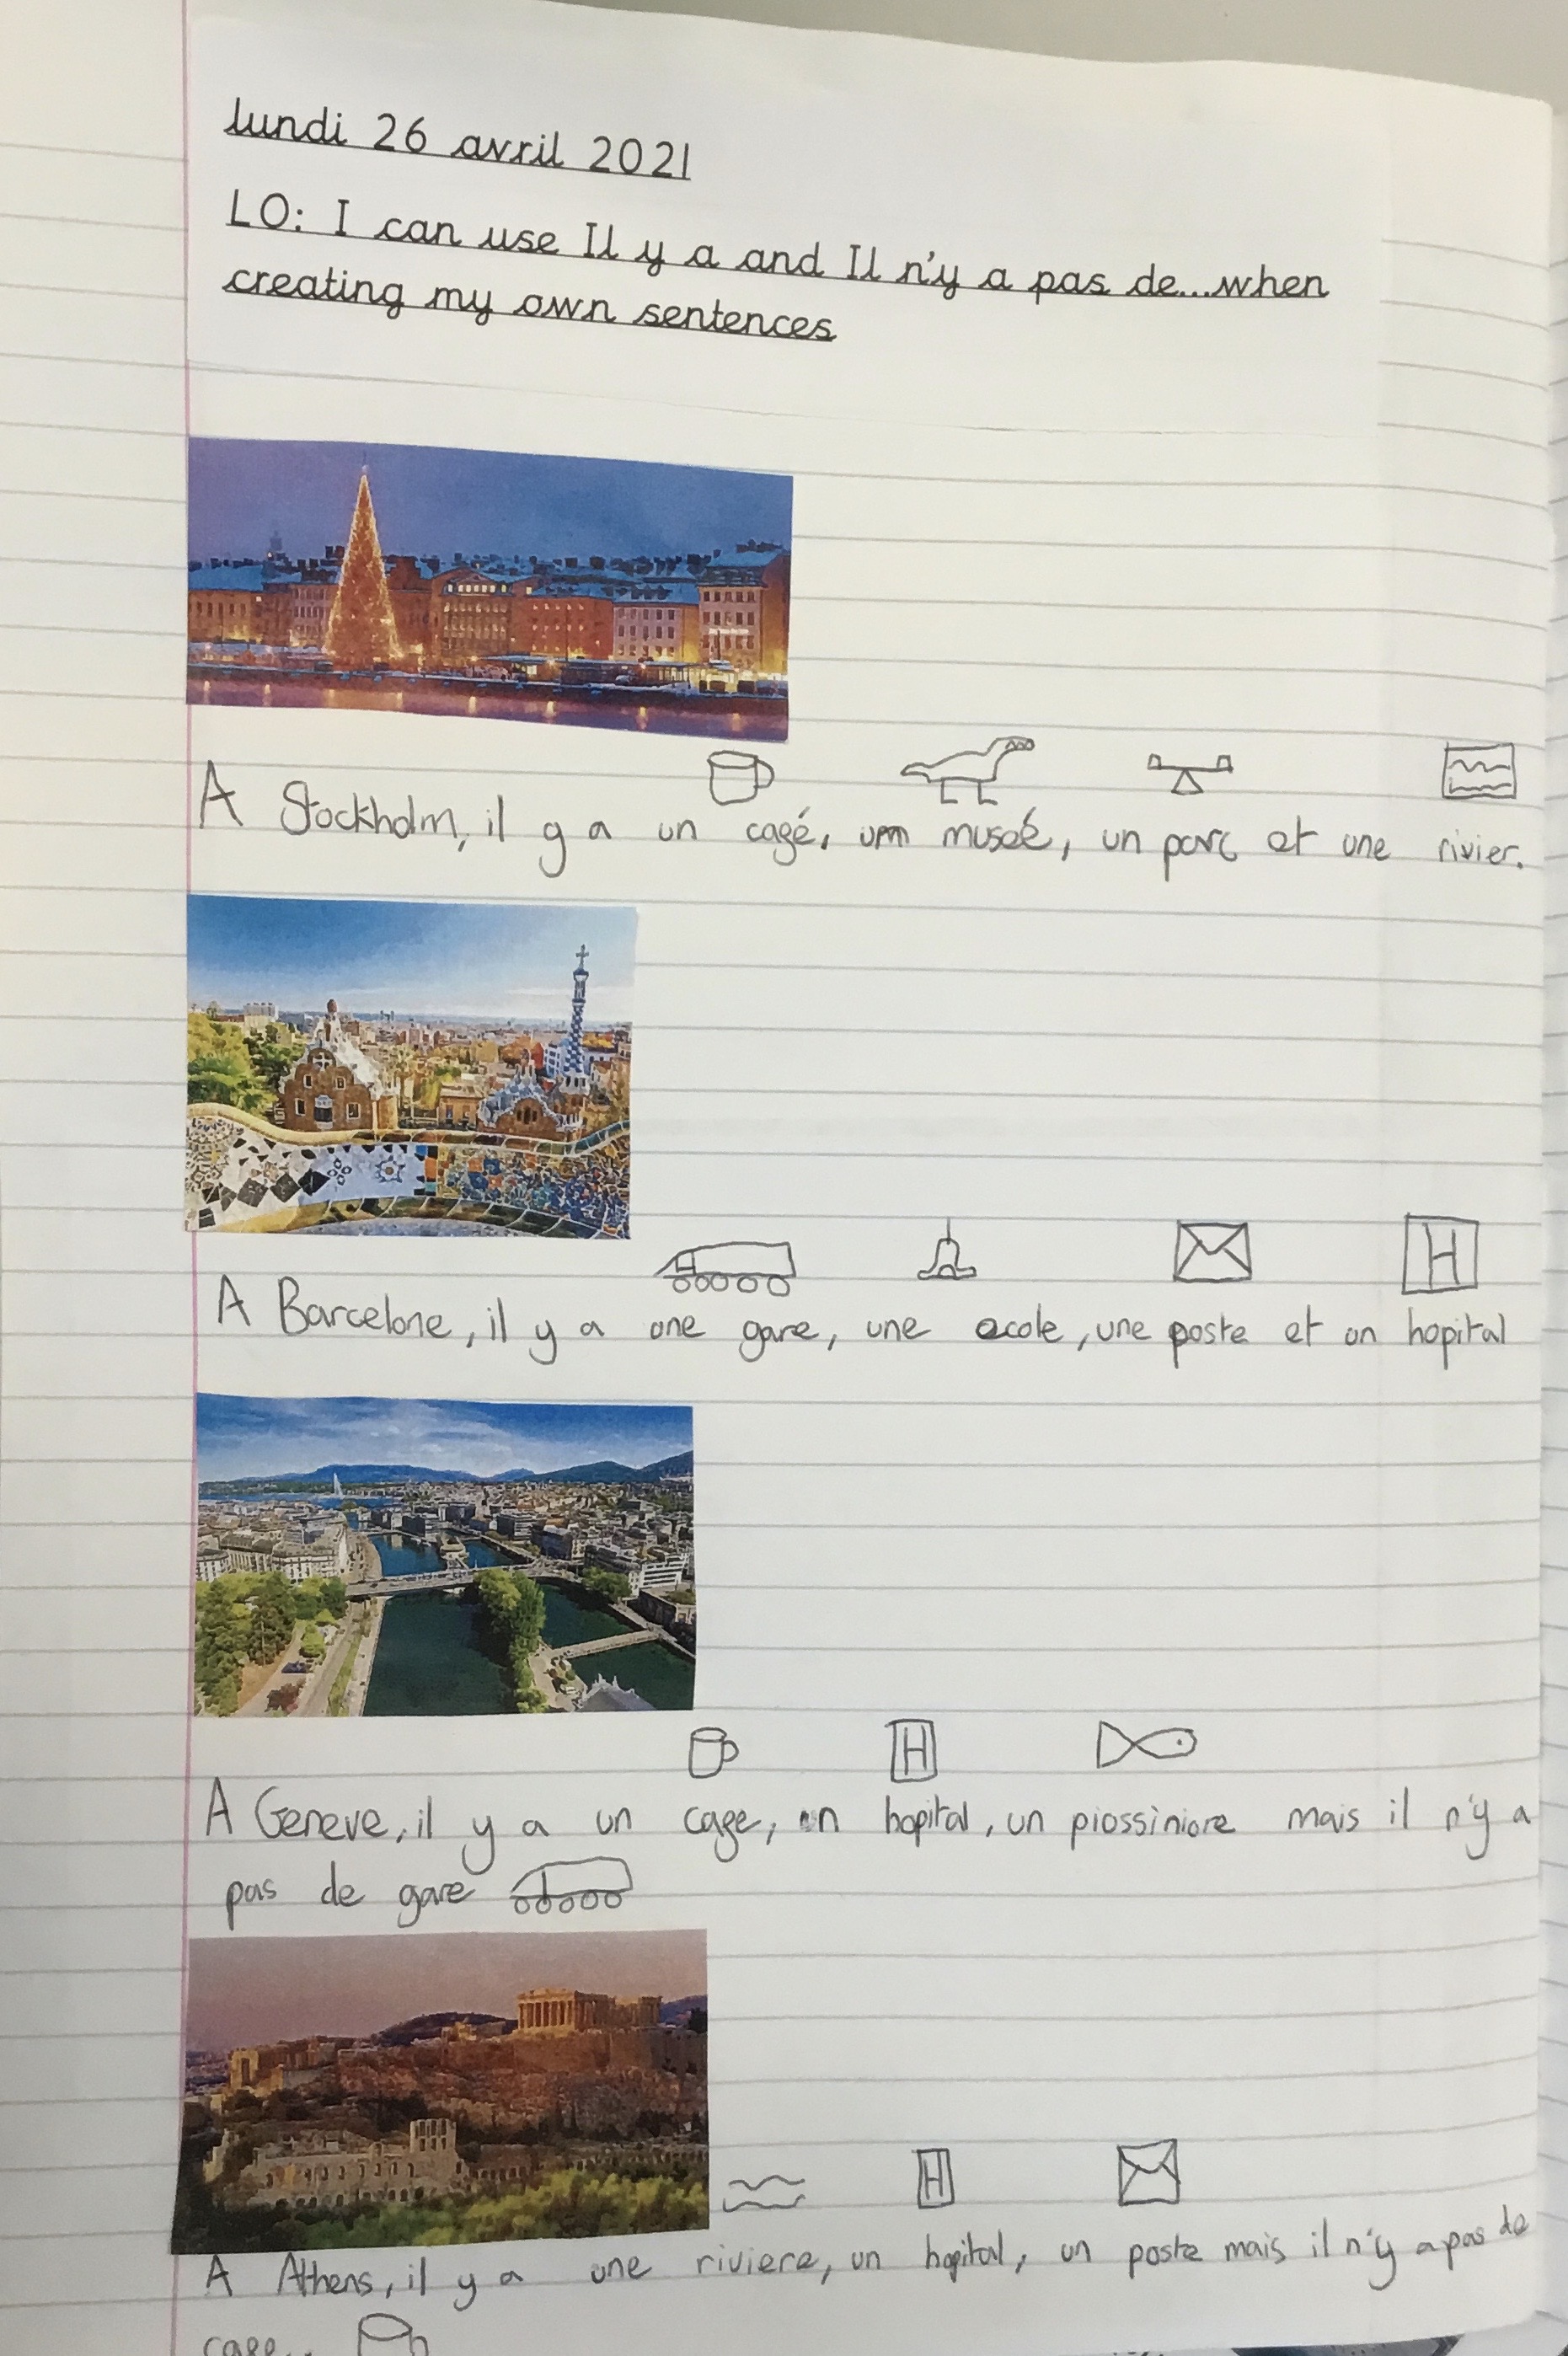 lundi 26 avril 2021
LO: I can use Il y a and Il n'y a pas de...when
creating my own sentences
A Stockholm, il y a un cagé, un museé, un parc et une rivier.
A Barcelone, il y a une gare, une ecole, une poste et un hopital
H
A Geneve, il y a un cage, un hopital, un piossiniore mais il n'y a
H
pas de gare
A Athens, il y a une riviere, un hopital, un poste mais il n'y a pas de
H
cage..